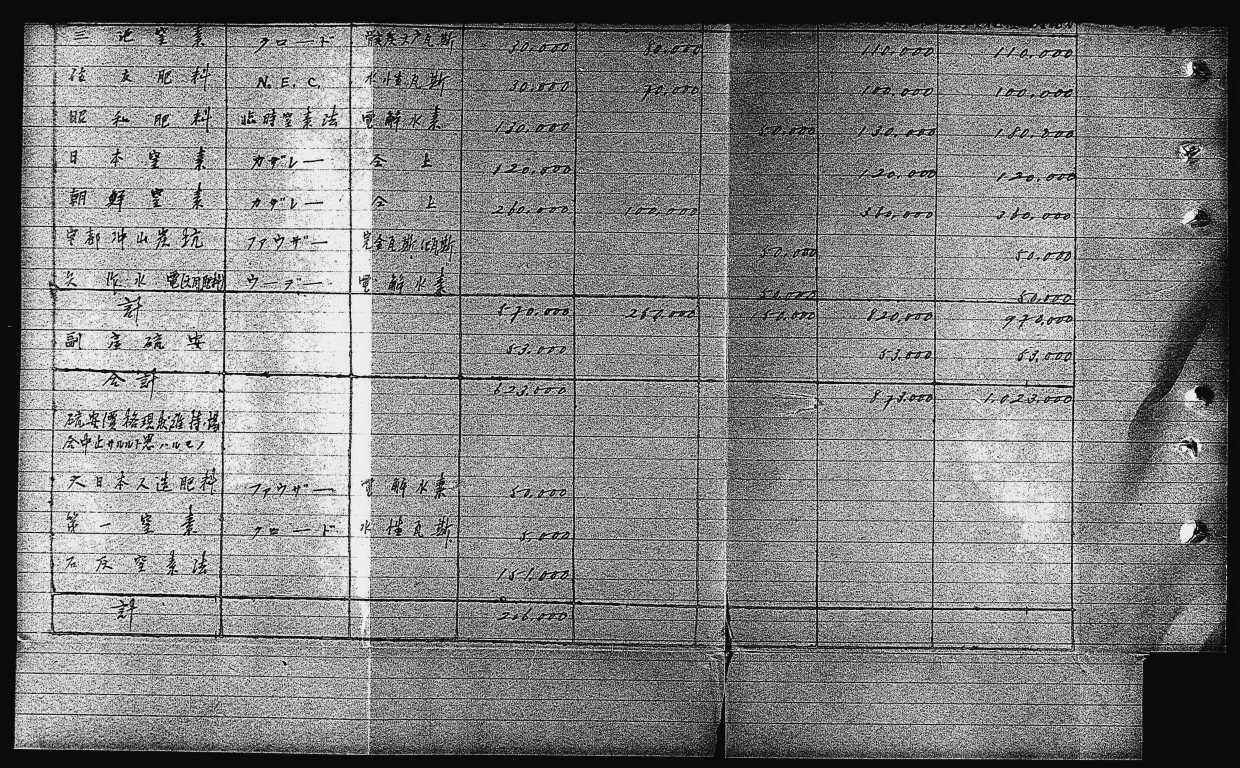 三池窒素 クロード 骸炭ヌ产瓦斯 30,000 80,000 110,000 110,000
住友肥料 N.E.C. 水性瓦斯 30,000 70,000 100,000 100,000
昭和肥料 臨時窒素法 電解水素 130,000 50,000 130,000 180,000
日本窒素 カザレー 仝上 120,000 120,000 120,000
朝鮮窒素 カザレー 仝上 260,000 100,000 360,000 360,000
宇部沖山炭坑 ファウザー 瓦斯 50,000 50,000
矢作水電 ウーデー 電解水素 50,000 50,000
計 570,000 250,000 150,000 820,000 970,000
副産硫安 53,000 53,000 53,000
合計 623,000 873,000 1,023,000
硫安價格現状維持ノ場
合中止サルルト思ハルモノ
大日本人造肥料 ファウザー 電解水素 50,000
第一窒素 クロード 水性瓦斯 5,000
石灰窒素法 151,000
計 206,000